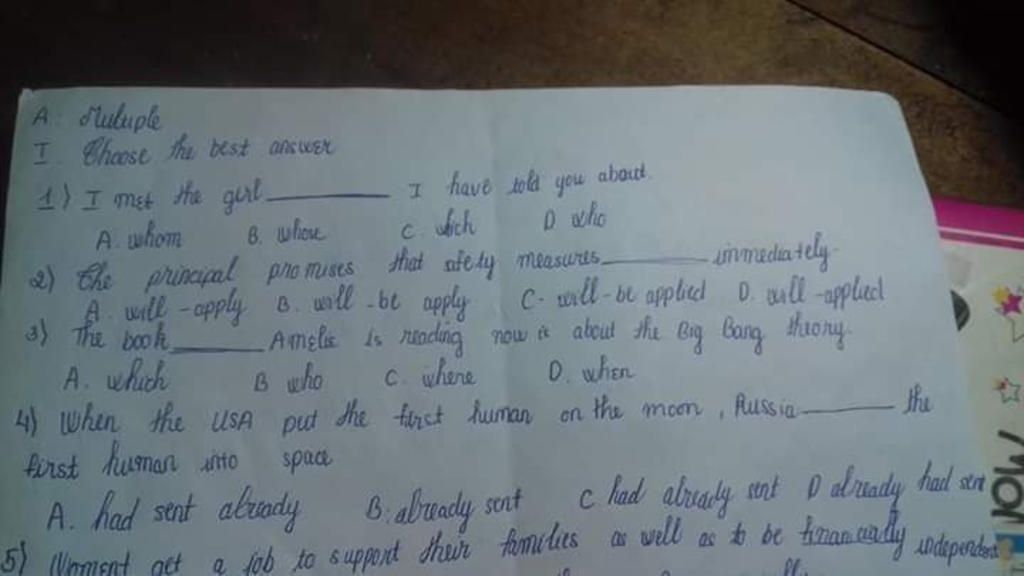 A: Multiple
I. Choose the best answer
1) I met the girl ________ I have told you about.
A. whom B. whose C. which D. who
2) The principal promises that safety measures ________ immediately.
A. will - apply B. will - be apply C. will - be applied D. will - applied
3) The book ________ Amelie is reading now is about the Big Bang theory.
A. which B who C. where D. when
4) When the USA put the first human on the moon, Russia ________ the
first human into space
A. had sent already B. already sent C had already sent D already had sent
5) Woment get a job to support their families as well as to be financially independent